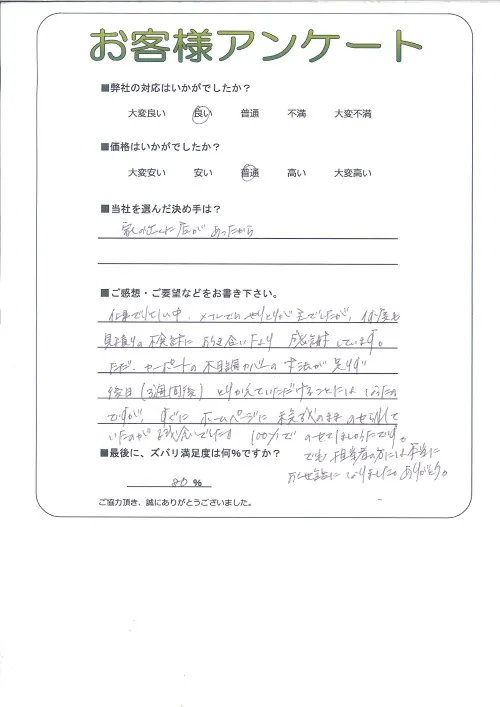 お客様アンケート
■弊社の対応はいかがでしたか？
大変良い 良い 普通 不満 大変不満
■価格はいかがでしたか？
大変安い 安い 普通 高い 大変高い
■当社を選んだ決め手は？
家の近くに店があったから
■ご感想・ご要望などをお書き下さい。
仕事で忙しい中、メールでのやりとりが主でしたが、何度も
見積りの検討にお付き合い下さり 感謝しています。
ただ、カーポートの木目調カバーの寸法が足りず
後日（3週間後）とりかえていただけることにはなったの
ですが、すぐに ホームページに 未完成のまま のせられて
いたのが 残念でした 100%で のせてほしかったです。
でも 担当者の方には本当に
お世話になりました。ありがとう。
■最後に、ズバリ満足度は何％ですか？
80 ％
ご協力頂き、誠にありがとうございました。